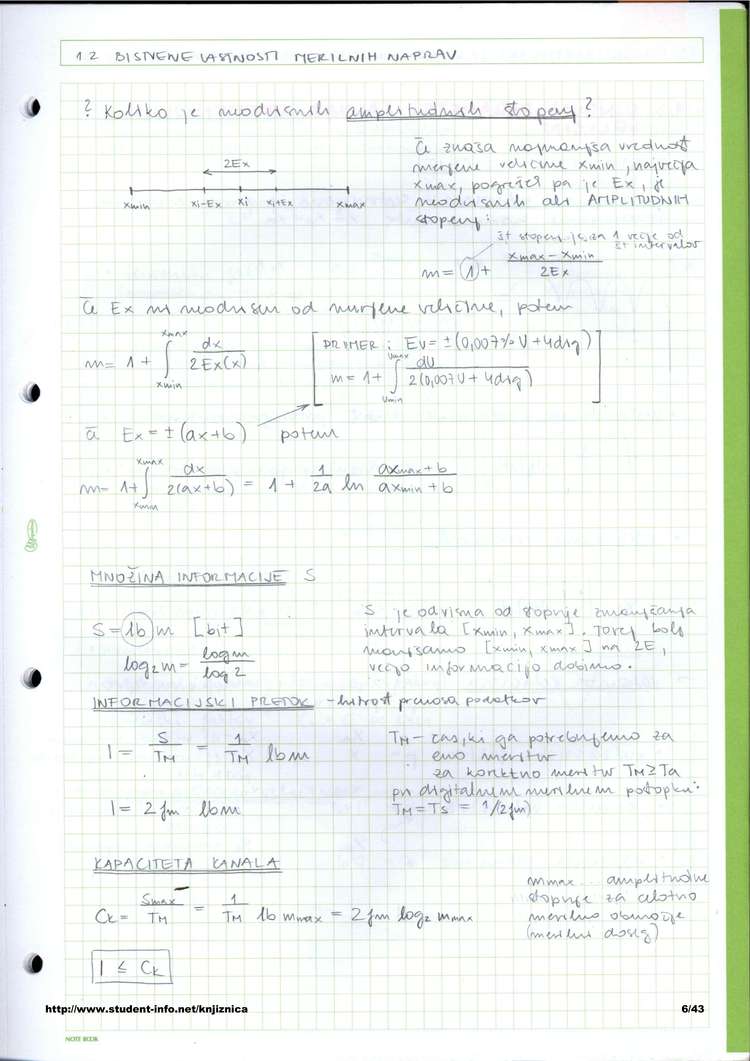 1.2 BISTVENE LASTNOSTI MERILNIH NAPRAV
? Koliko je neodvisnih amplitudnih stopenj?
Če znaša najmanjša vrednost
merjene veličine xmin, največja
xmax, pogrešek pa je Ex, je
neodvisnih ali AMPLITUDNIH
stopenj:
2Ex
xmin xi-Ex xi xi+Ex xmax
št stopenj je za 1 večje od
št intervalov
m = 1 + (xmax - xmin) / 2Ex
Če Ex ni neodvisen od merjene veličine, potem
m = 1 + ∫ xmin xmax dx / 2Ex(x)
[PRIMER: Eu = ±(0,007% U + 4dig)
m = 1 + ∫ Umin Umax dU / 2(0,007U + 4dig)]
če Ex = ±(ax+b) potem
m = 1 + ∫ xmin xmax dx / 2(ax+b) = 1 + 1/2a ln (axmax + b) / (axmin + b)
MNOŽINA INFORMACIJE S
S = lb m [bit]
log2 m = log m / log 2
S je odvisna od stopnje zmanjšanja
intervala [xmin, xmax]. Torej bolj
manjšamo [xmin, xmax] na 2E,
večjo informacijo dobimo.
INFORMACIJSKI PRETOK - hitrost prenosa podatkov
I = S / TM = 1 / TM lb m
I = 2 fm lb m
TM - čas, ki ga potrebujemo za
eno meritev
za korektno meritev TM ≥ Ta
pri digitalnem merilnem postopku:
TM = Ts = 1/2fm)
KAPACITETA KANALA
Ck = Smax / TM = 1 / TM lb mmax = 2 fm log2 mmax
mmax .. amplitudne
stopnje za celotno
merilno območje
(merilni doseg)
I ≤ Ck
http://www.student-info.net/knjiznica
6/43
NOTE BOOK